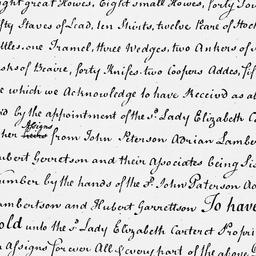 ight great Howes, Eight small Howes, forty Tow
fty Staves of Lead, ten Shirts, twelve Peare of Stoc
tles, one Tramel, three Wedges, two Ankers of
sks of Beaire, forty Knifes two Coopers Addes, fif
e which we Acknowledge to have Received as ab
id by the appointment of the sd. Lady Elizabeth Ca
her Assigns from John Peterson Adrian Lamber
ubert Gerretson and their Associates being Six
umber by the hands of the sd. John Paterson Ad
ambertson and Hubert Garrettson To have
old unto the sd. Lady Elizabeth Carteret Propri
r Assigns forever All & every part of the above